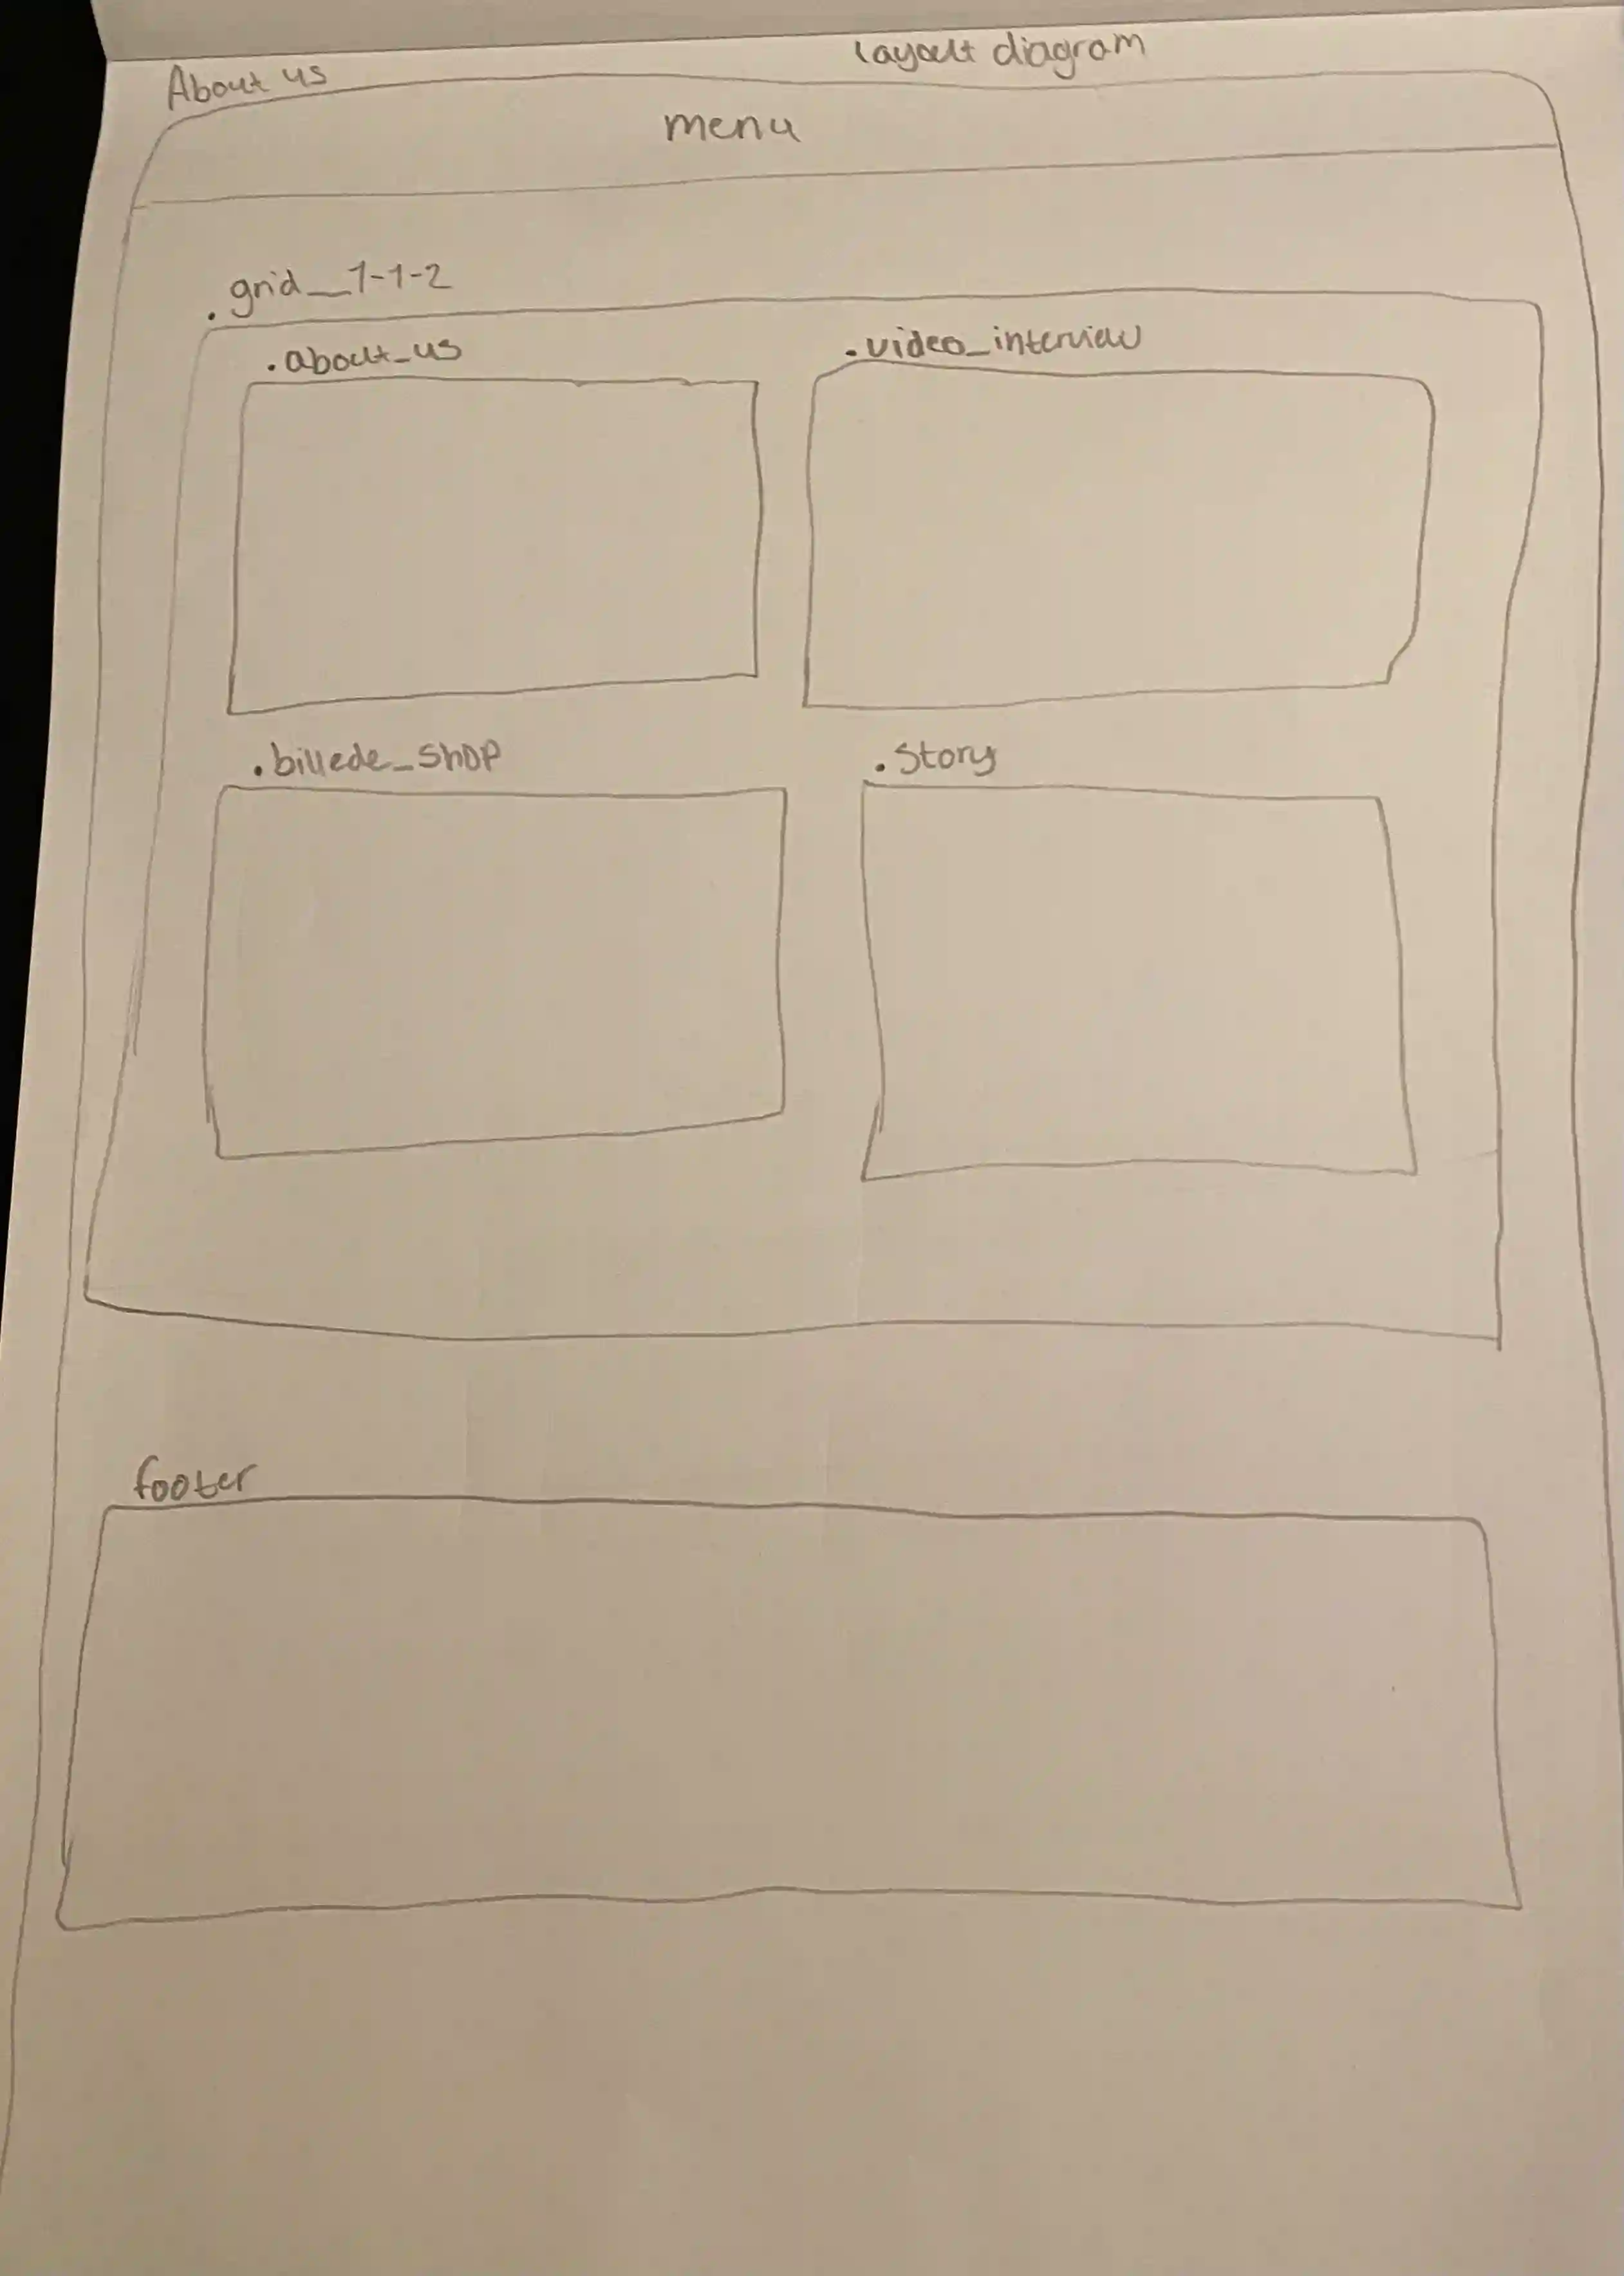 About us
layout diagram
menu
.grid__1-1-2
.about_us
.video_interview
.billede_shop
.Story
footer